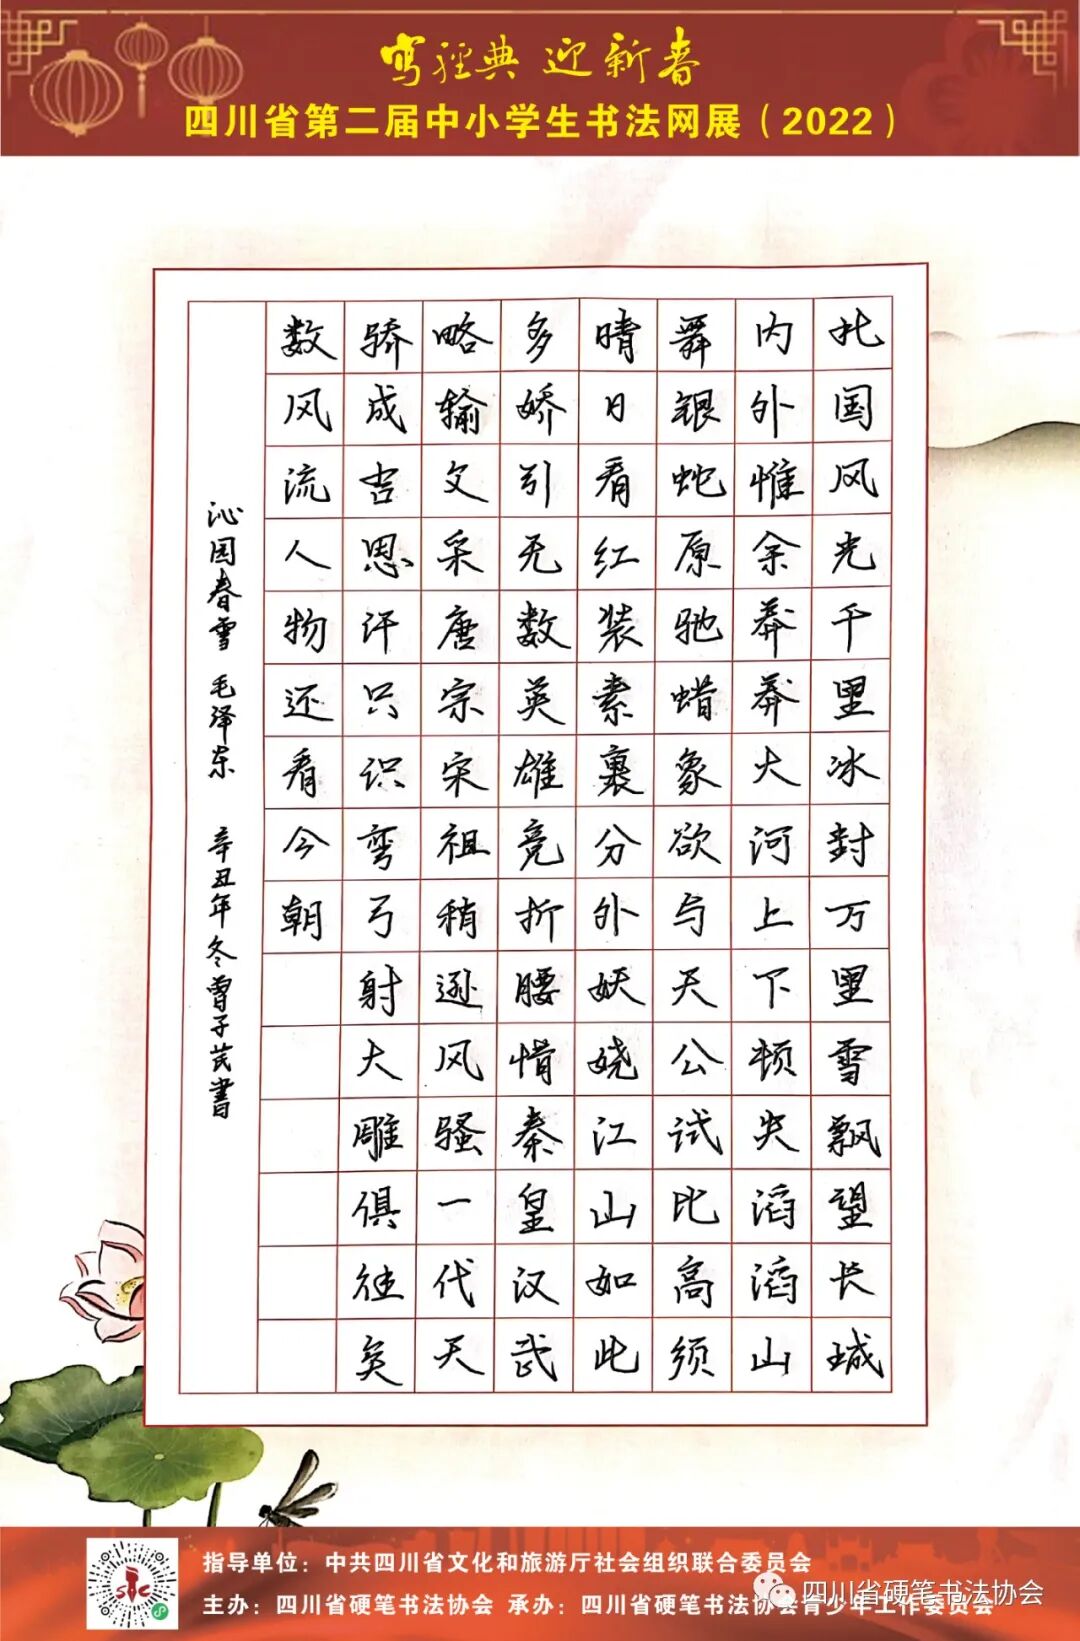 写经典 迎新春
四川省第二届中小学生书法网展（2022）
北国风光千里冰封万里雪飘望长城
内外惟余莽莽大河上下顿失滔滔山
舞银蛇原驰蜡象欲与天公试比高须
晴日看红装素裹分外妖娆江山如此
多娇引无数英雄竞折腰惜秦皇汉武
略输文采唐宗宋祖稍逊风骚一代天
骄成吉思汗只识弯弓射大雕俱往矣
数风流人物还看今朝
沁园春雪 毛泽东 辛丑年冬曾子芪書
指导单位：中共四川省文化和旅游厅社会组织联合委员会
主办：四川省硬笔书法协会 承办：四川省硬笔书法协会青少年工作委员会
四川省硬笔书法协会